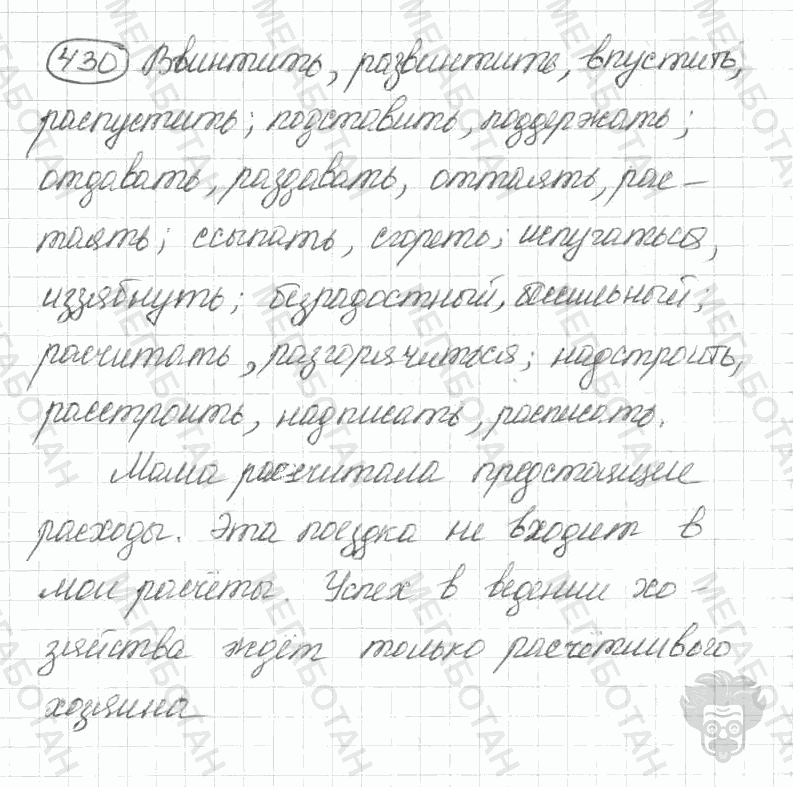 430 Ввинтить, развинтить, впустить,
распустить; подставить, поддержать;
отдавать, раздавать, оттаять, рас-
таять; ссыпать, сгореть; испугаться,
иззябнуть; безрадостный, бессильный;
расчитать, разгорячиться; надстроить,
расстроить, надписать, расписать.
Мама рассчитала предстоящие
расходы. Эта поездка не входит в
мои расчёты. Успех в ведении хо-
зяйства ждёт только расчётливого
хозяина
МЕГАБОТАН